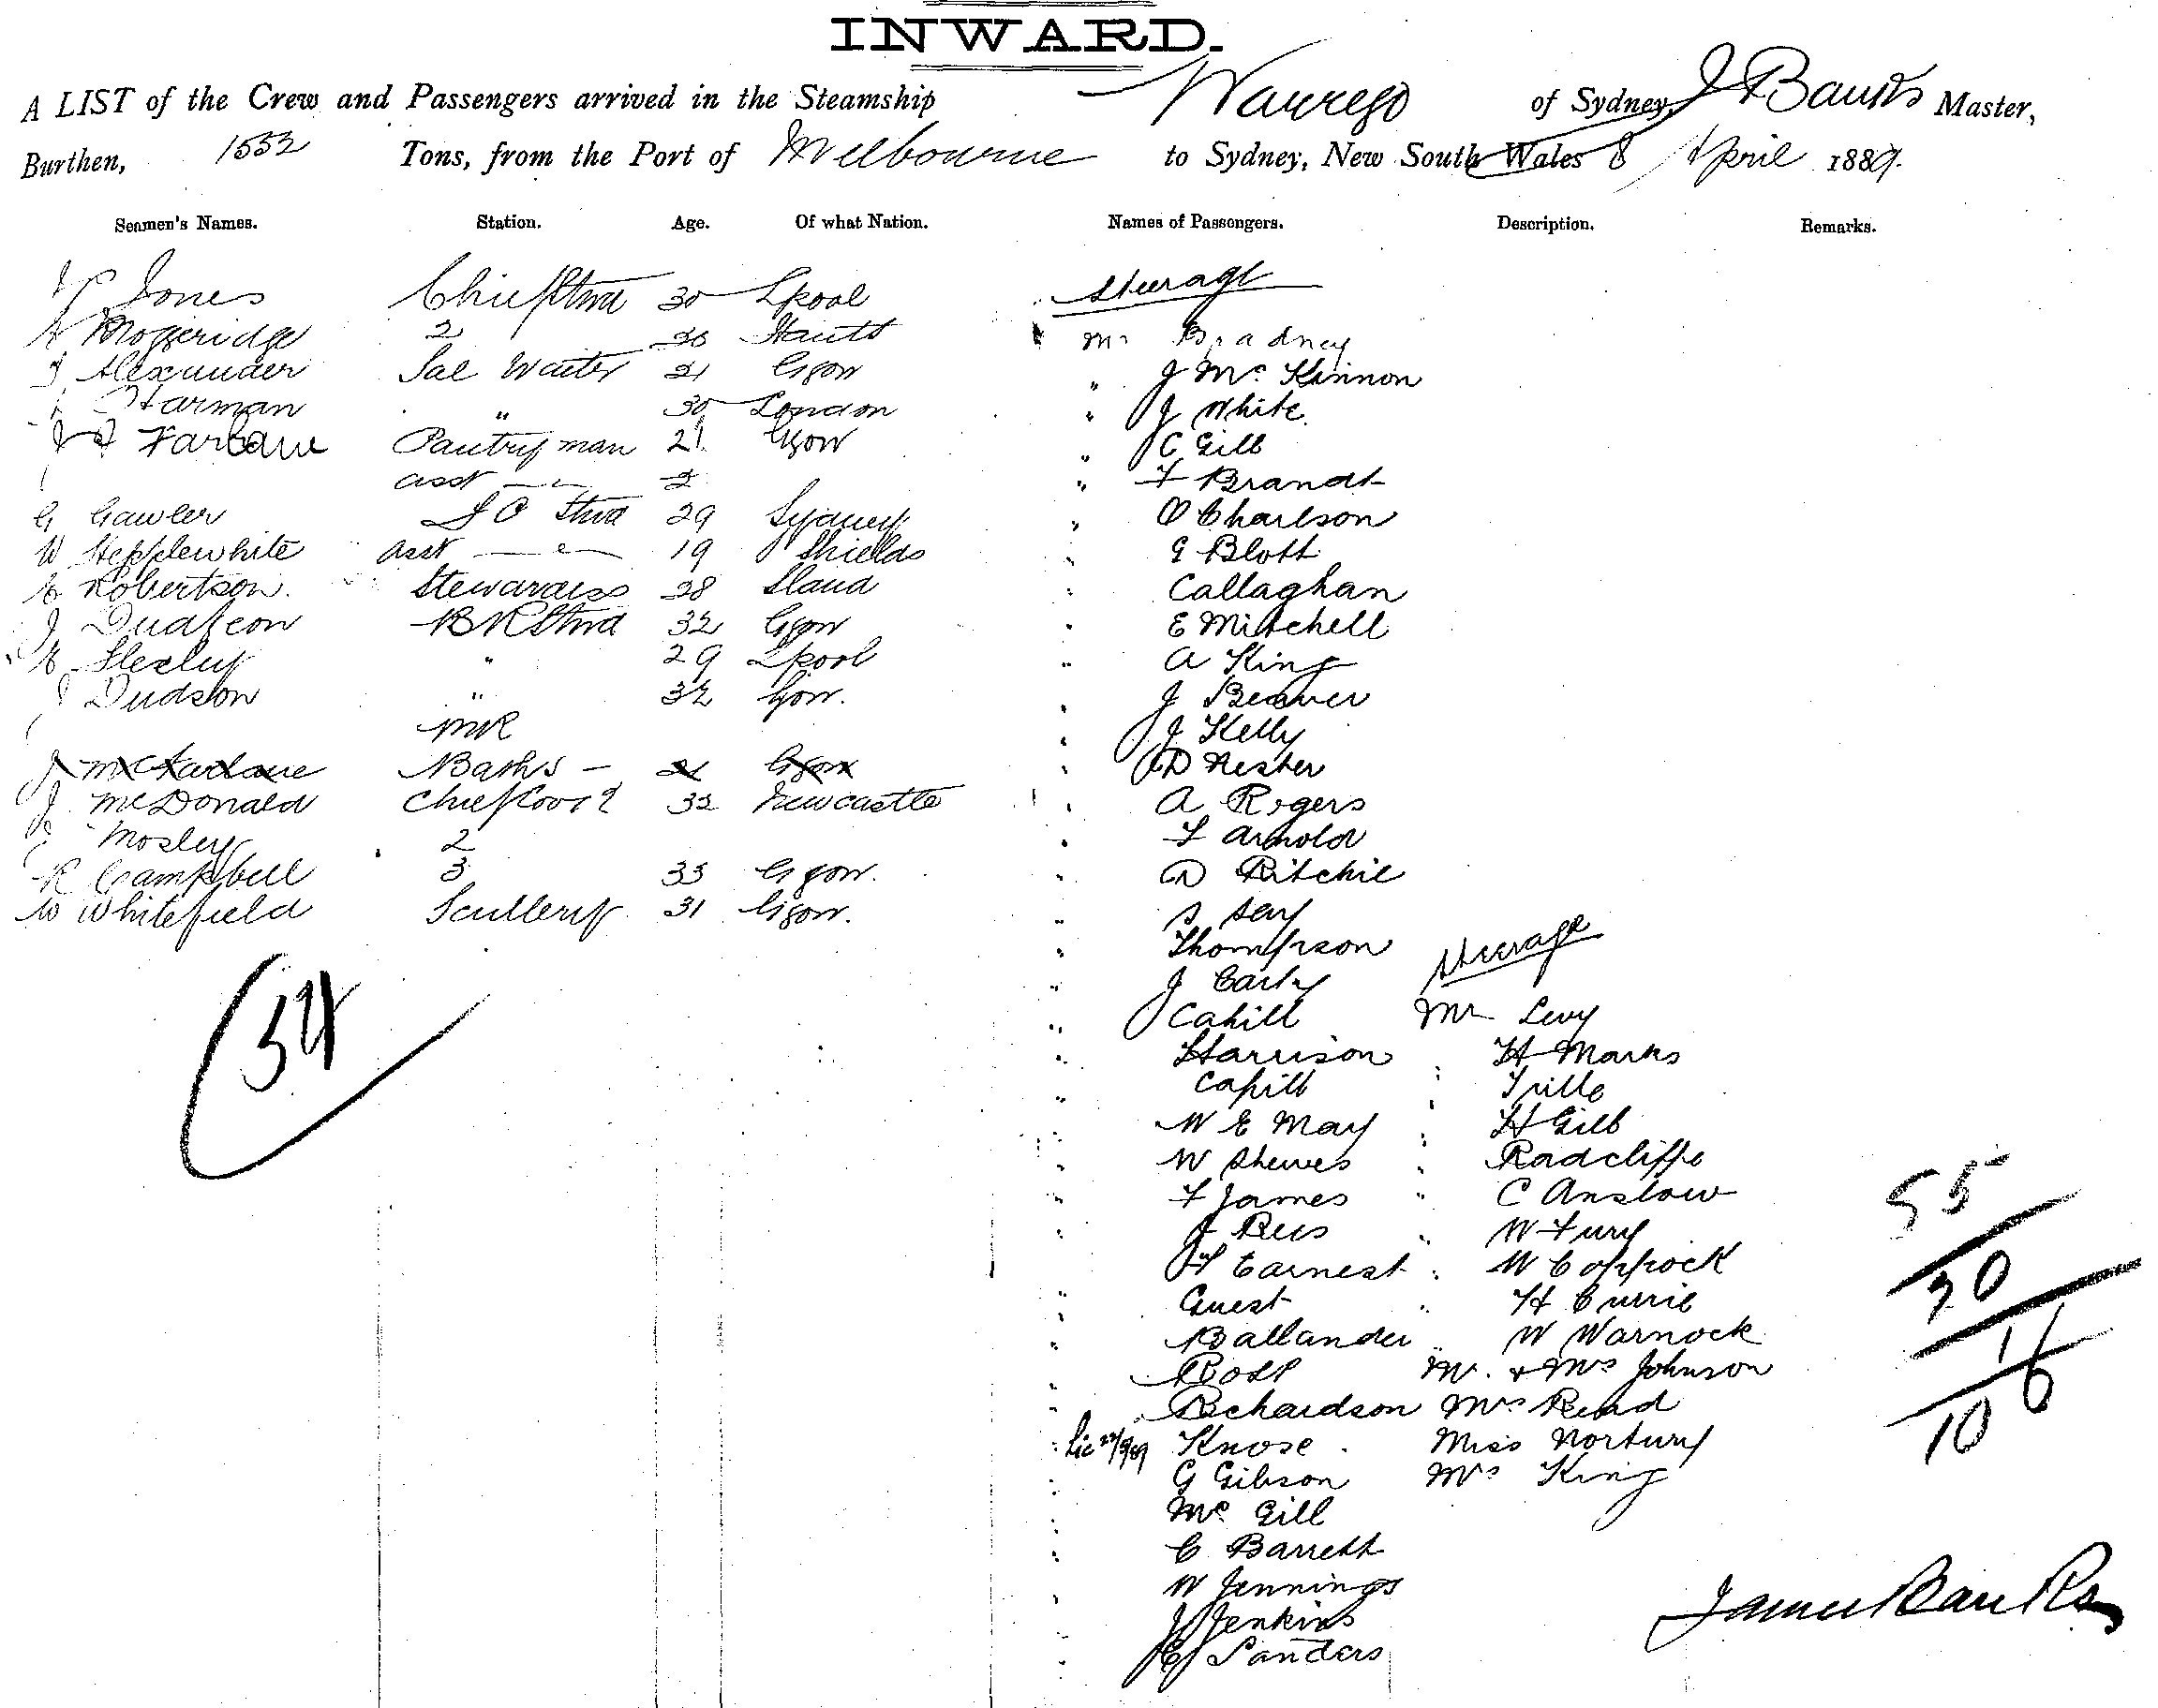 INWARD.
A LIST of the Crew and Passengers arrived in the Steamship Warrego of Sydney, J Banks Master,
Burthen, 1552 Tons, from the Port of Melbourne to Sydney, New South Wales 8 April 1889.
Seamen's Names. Station. Age. Of what Nation. Names of Passengers. Description. Remarks.
Jones Chief Stwd 30 Lpool
Moggeridge 2 36 Hants
Alexander Sal Waiter 21 Ggow
Harman " 30 London
Farlane Pantry man 21 Ggow
asst 2
G Gawler S C Stwd 29 Sydney
W Hepplewhite asst 19 Shields
Robertson. Stewardess 38 Sland
J Dudgeon BR Stwd 32 Ggow
" 29 Lpool
Dudson " 32 Ggow.
MR
J McFarlane Baths - 21 Ggow
J McDonald Chief Cook 32 Newcastle
Mosley 2
R Campbell 3 33 Ggow.
W Whitefield Scullery 31 Ggow.
34
Steerage
Mr Bradney
" J Mc Kinnon
" J White
" C Gill
" F Brandt
" O Charlson
G Blott
Callaghan
E Mitchell
A King
J Beaver
J Kelly
D Nester
A Rogers
F Arnold
D Ritchie
S Say
Thompson
J Carty
Cahill
Harrison
Cahill
W E May
W Shewes
F James
J Rees
H Earnest
Guest
Ballander
Ross
Richardson
Lic 22/3/89 Knose
G Gibson
Mc Gill
C Barrett
W Jennings
J Jenkins
E Sanders
Steerage
Mr Levy
H Marks
Trille
H Gill
Radcliffe
" C Anslow
" W Fury
W Coppock
H Currie
W Warnock
Mr. & Mrs Johnson
Mrs Read
Miss Nortury
Mrs King
55
30
16
10
James Banks